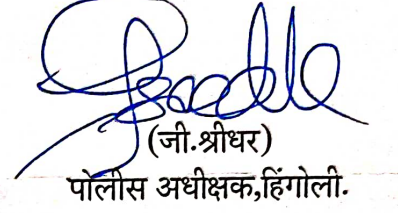 (जी.श्रीधर)
पोलीस अधीक्षक,हिंगोली.